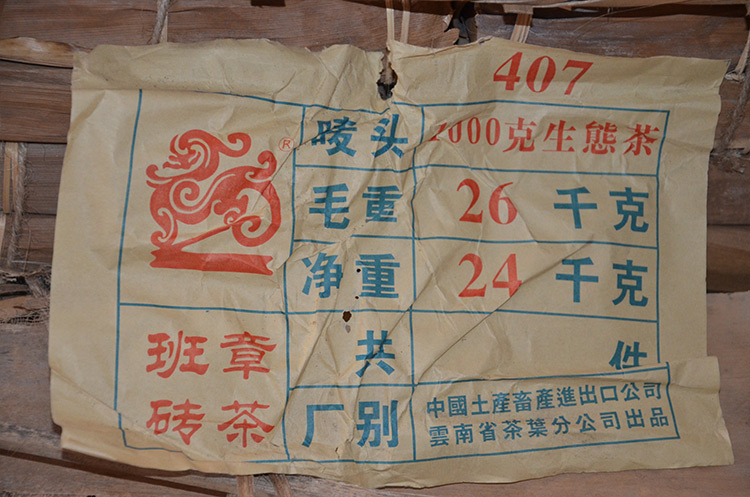 407
唛头 1000克生態茶
毛重 26 千克
净重 24 千克
共 件
班章
砖茶
厂别
中國土產畜產進出口公司
雲南省茶葉分公司出品
®